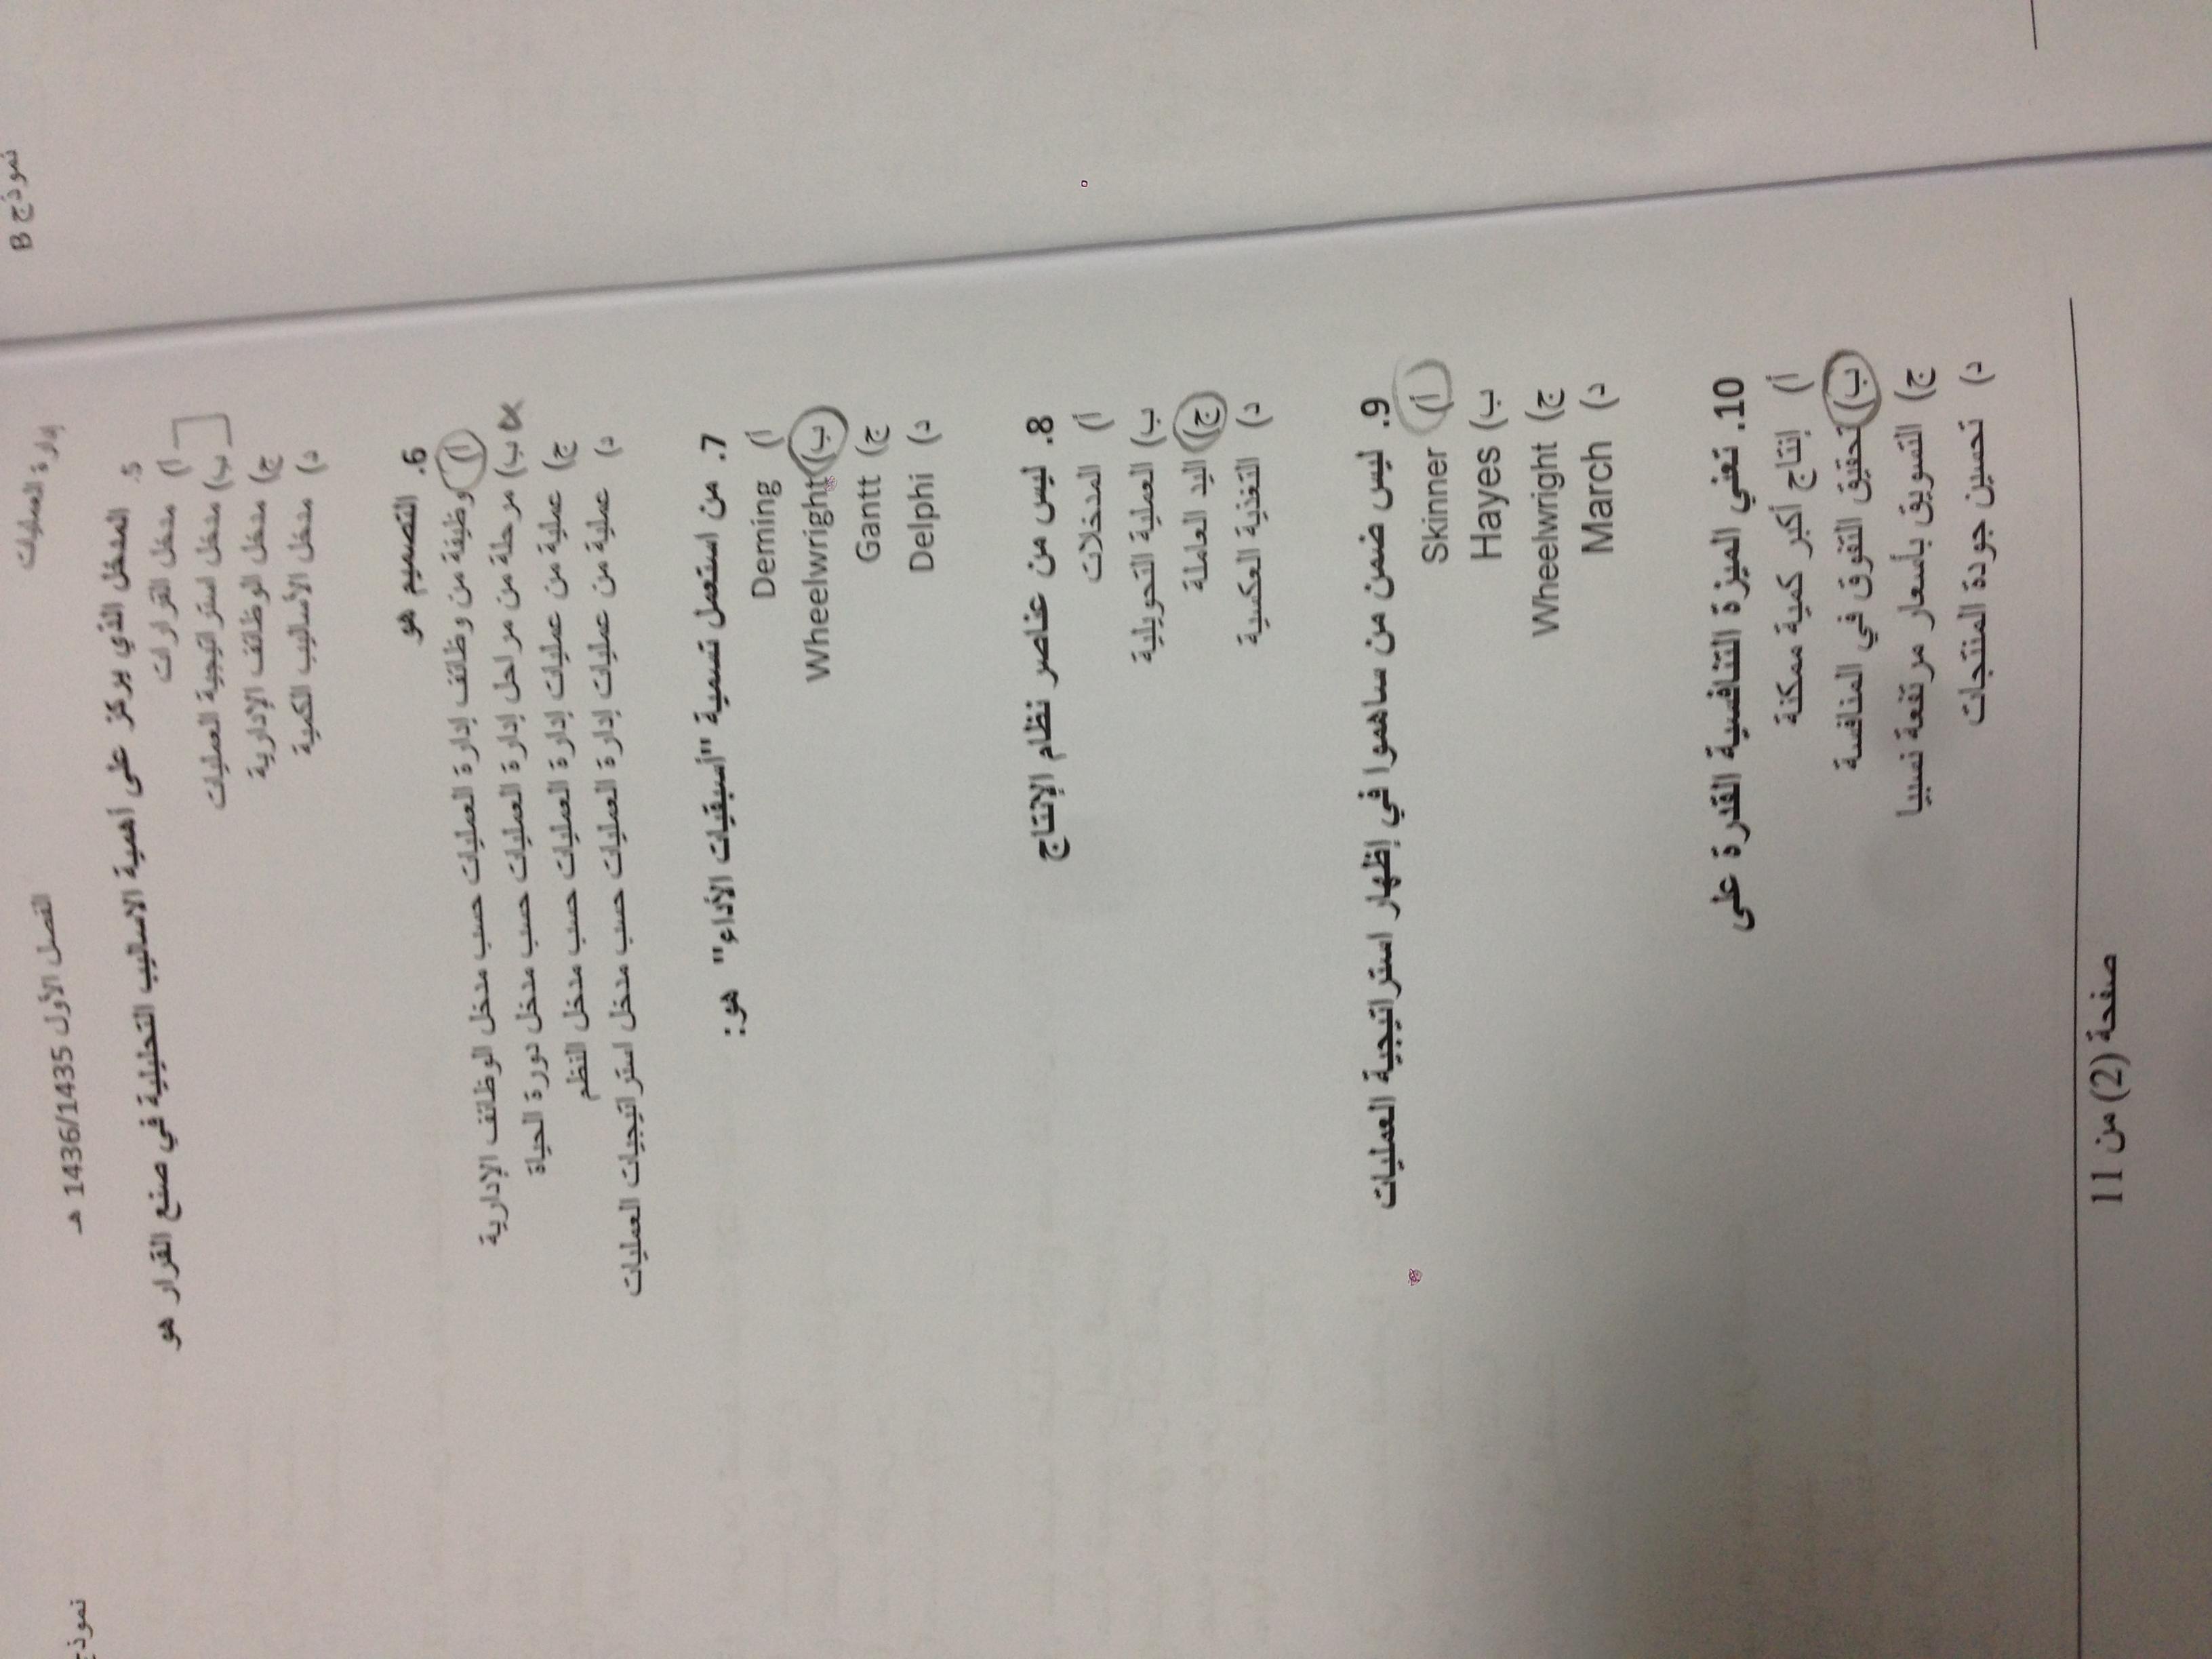 نموذج B
إدارة العمليات
الفصل الأول 1436/1435 هـ
نموذج
5. المدخل الذي يركز على أهمية الاساليب التحليلية في صنع القرار هو
أ) مدخل القرارات
ب) مدخل استراتيجية العمليات
ج) مدخل الوظائف الإدارية
د) مدخل الأساليب الكمية
6. التصميم هو
أ) وظيفة من وظائف إدارة العمليات حسب مدخل الوظائف الإدارية
ب) مرحلة من مراحل إدارة العمليات حسب مدخل دورة الحياة
ج) عملية من عمليات إدارة العمليات حسب مدخل النظم
د) عملية من عمليات إدارة العمليات حسب مدخل استراتيجيات العمليات
7. من استعمل تسمية "أسبقيات الأداء" هو:
أ) Deming
ب) Wheelwright
ج) Gantt
د) Delphi
8. ليس من عناصر نظام الإنتاج
أ) المدخلات
ب) العملية التحويلية
ج) اليد العاملة
د) التغذية العكسية
9. ليس ضمن من ساهموا في إظهار استراتيجية العمليات
أ) Skinner
ب) Hayes
ج) Wheelwright
د) March
10. تعني الميزة التنافسية القدرة على
أ) إنتاج أكبر كمية ممكنة
ب) تحقيق التفوق في المنافسة
ج) التسويق بأسعار مرتفعة نسبيا
د) تحسين جودة المنتجات
صفحة (2) من 11